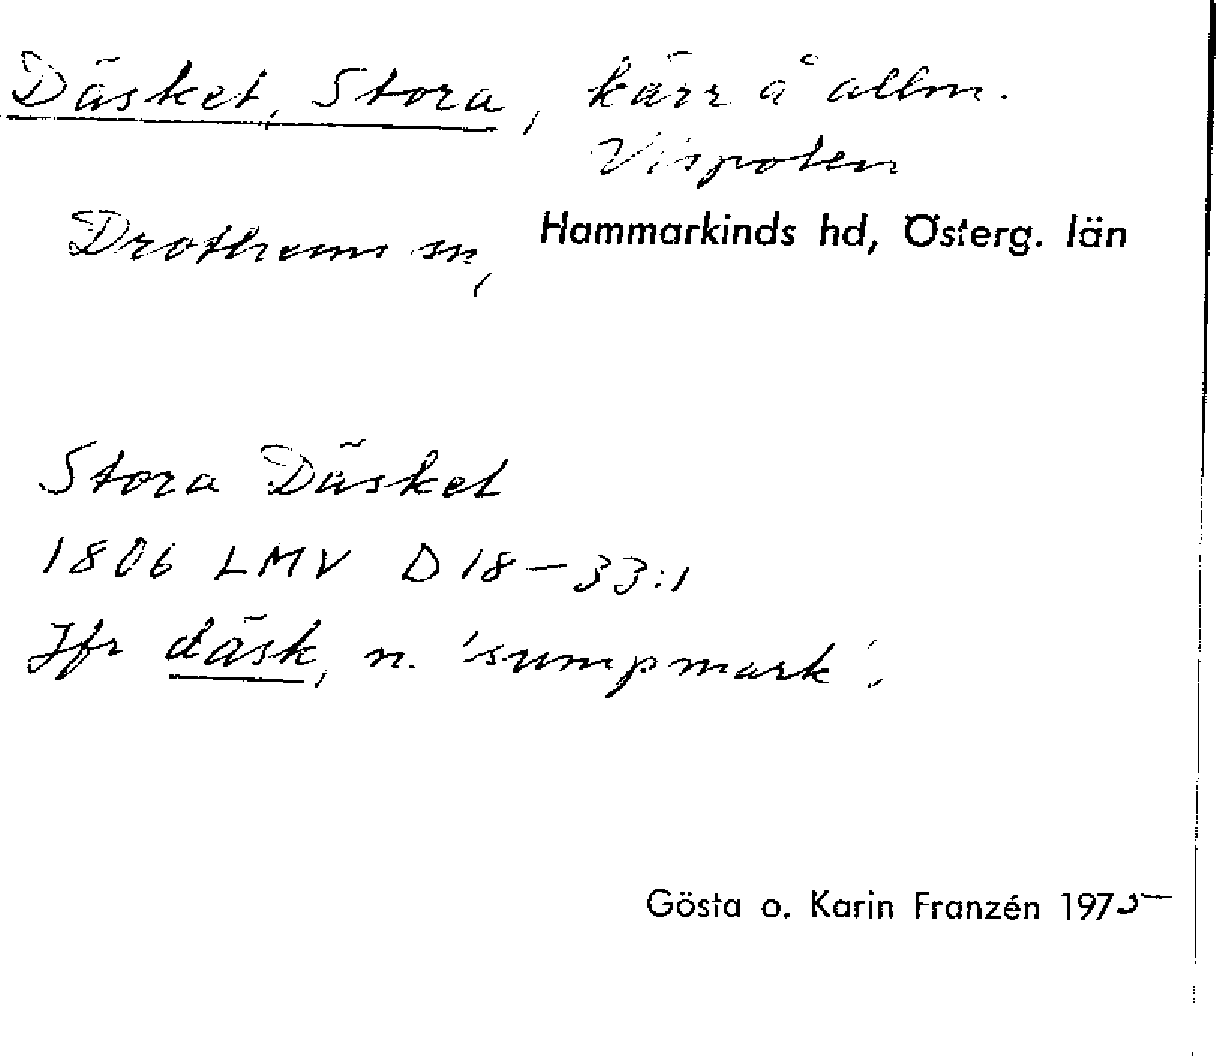 Däsket, Stora, kärr å allm.
Vispolen
Drothems sn, Hammarkinds hd, Österg. län
Stora Däsket
1806 LMV D18-33:1
Jfr däsk, n. 'sumpmark'.
Gösta o. Karin Franzén 1975